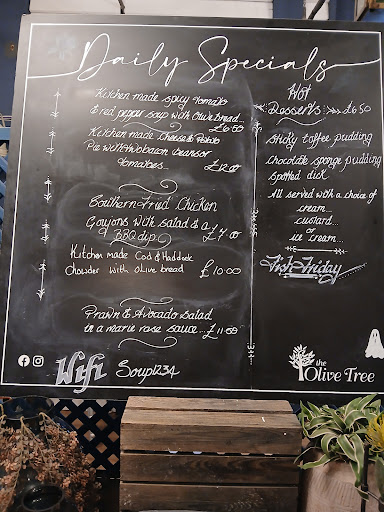 Daily Specials
Kitchen made spicy tomato
& red pepper soup with olive bread...
£6.50
Kitchen made Cheese & Potato
Pie with baked beans or
tomatoes... £12.00
Southern-Fried Chicken
Goujons with salad & a
BBQ dip. £7.00
Kitchen made Cod & Haddock
Chowder with olive bread £10.00
Prawn & Avocado salad
in a marie rose sauce...£11.50
Wifi Soup1234
Hot
Desserts £6.50
Sticky toffee pudding
Chocolate sponge pudding
Spotted dick
All served with a choice of
cream...
custard...
or
ice cream...
Fish Friday
the
Olive Tree